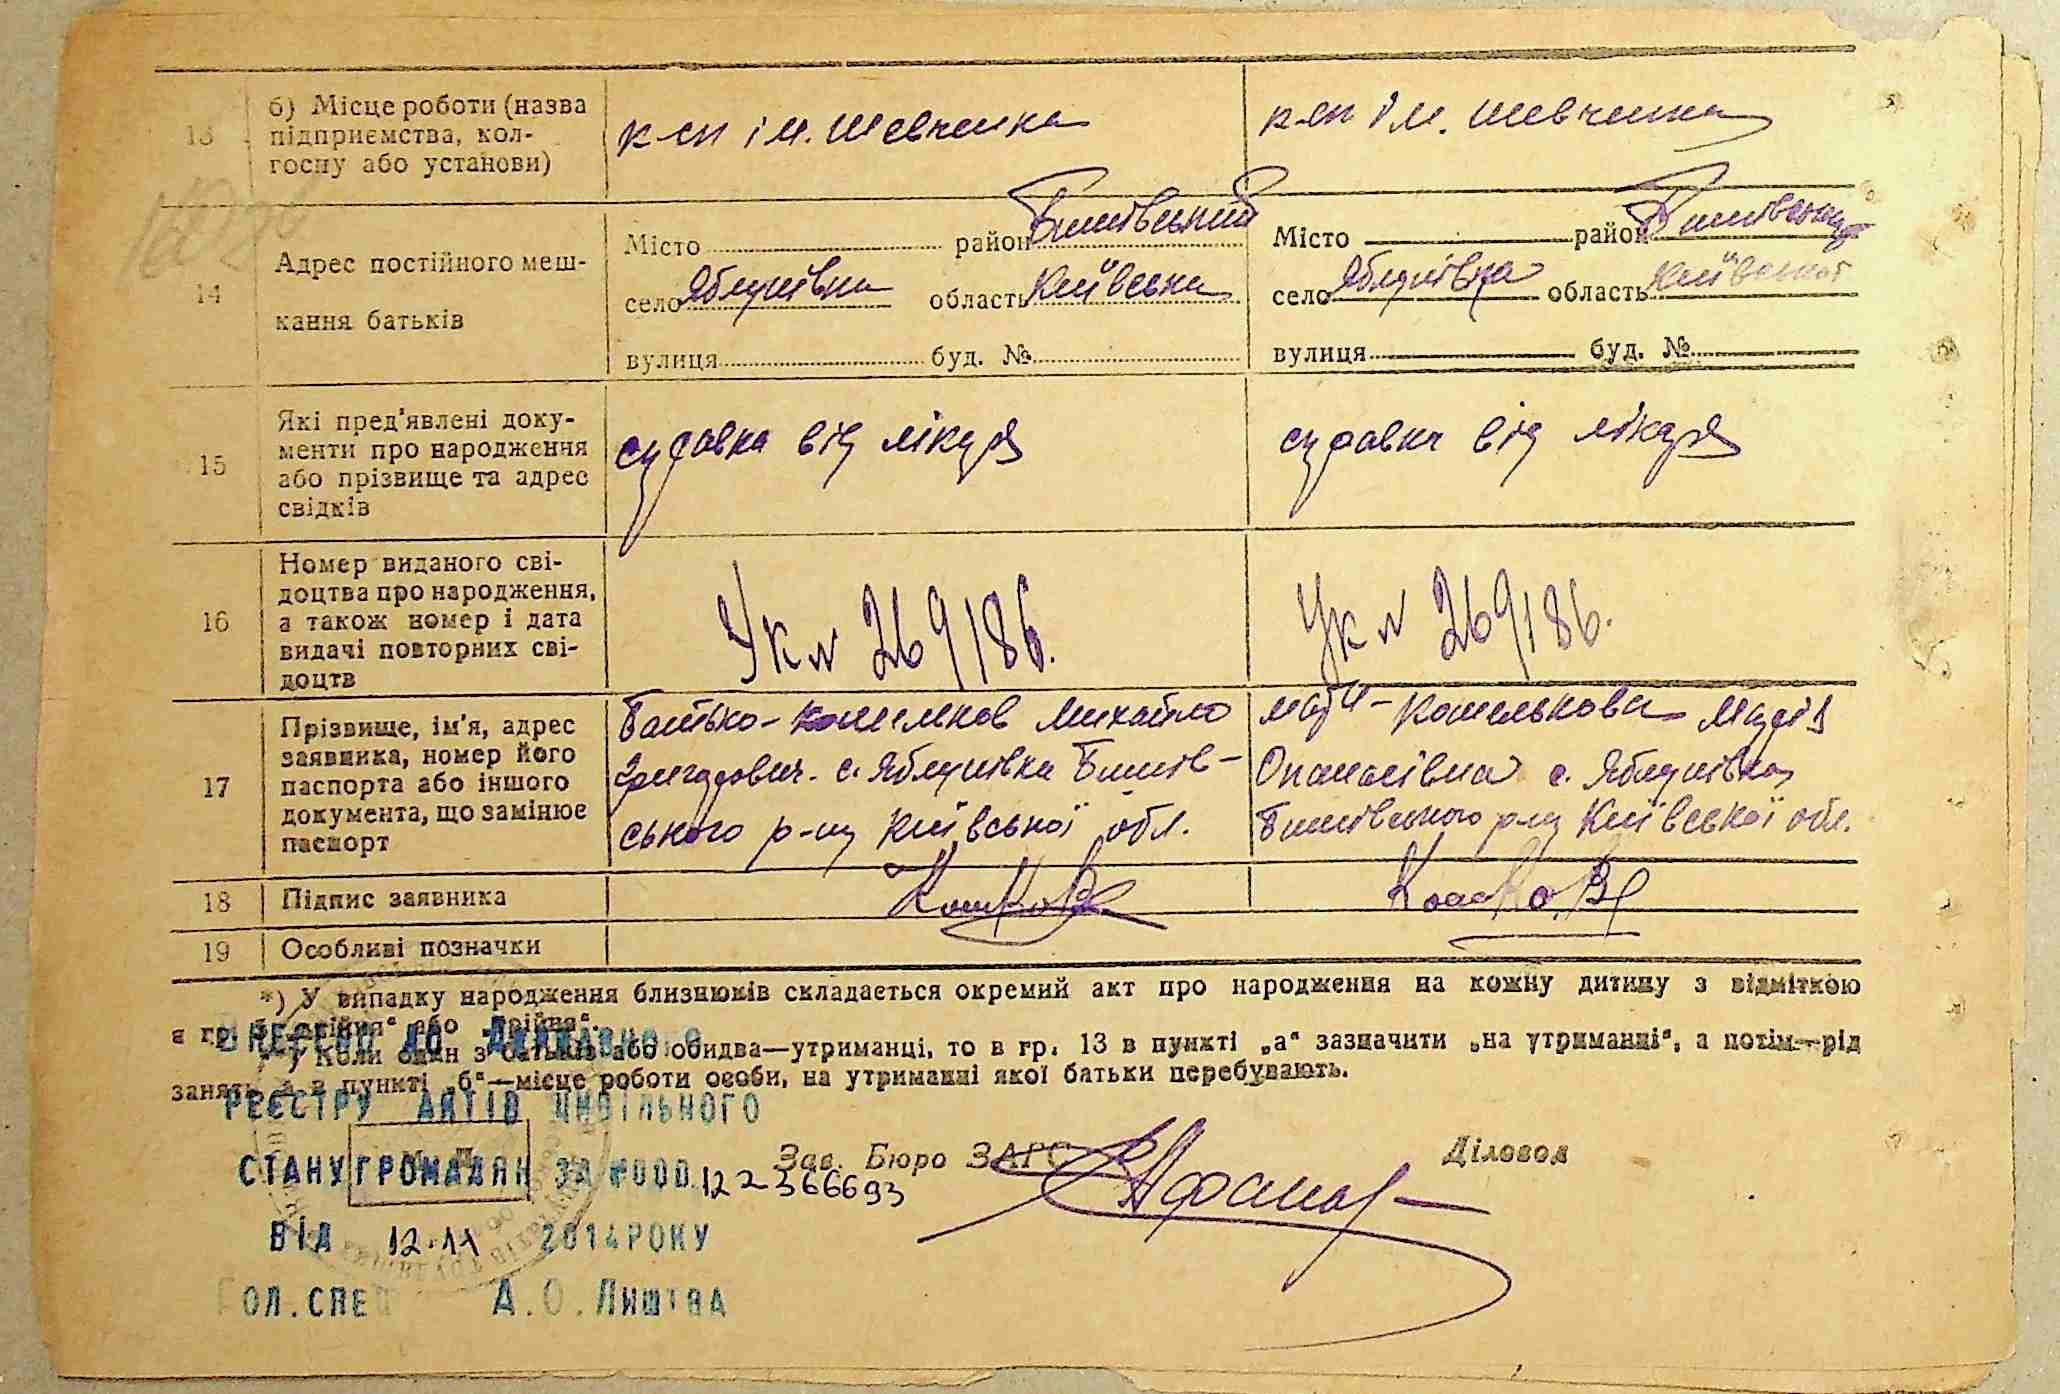 13 б) Місце роботи (назва
підприємства, кол-
госпу або установи)
к-сп ім. Шевченка
к-сп ім. Шевченка
14 Адрес постійного меш-
кання батьків
Місто район Бишівський
село Яблунівка область Київська
вулиця буд. №
Місто район
село Яблунівка область Київської
вулиця буд. №
15 Які пред'явлені доку-
менти про народження
або прізвище та адрес
свідків
справка від лікаря
справка від лікаря
16 Номер виданого сві-
доцтва про народження,
а також номер і дата
видачі повторних сві-
доцтв
Ук № 269186.
Ук № 269186.
17 Прізвище, ім'я, адрес
заявника, номер його
паспорта або іншого
документа, що замінює
паспорт
Батько - Кошельков Михайло
Григорович. с. Яблунівка Бишів-
ського р-ну Київської обл.
мати - Кошелькова Марія
Опанасівна с. Яблунівка
Бишівського р-ну Київської обл.
18 Підпис заявника
19 Особливі позначки
*) У випадку народження близнюків складається окремий акт про народження на кожну дитину з відміткою
в гр. або "трійня".
Коли один з батьків або обидва—утриманці, то в гр. 13 в пункті „а" зазначити „на утриманні", а потім—рід
занять, а в пункті „б"—місце роботи особи, на утриманні якої батьки перебувають.
ВНЕСЕНО ДО ДЕРЖАВНОГО
РЕЄСТРУ АКТІВ ЦИВІЛЬНОГО
СТАНУ ГРОМАДЯН ЗА №000 122366693
ВІД 12.11 2014 РОКУ
ГОЛ.СПЕЦ А.О.Лиштва
М. П.
Зав. Бюро ЗАГС
Діловод